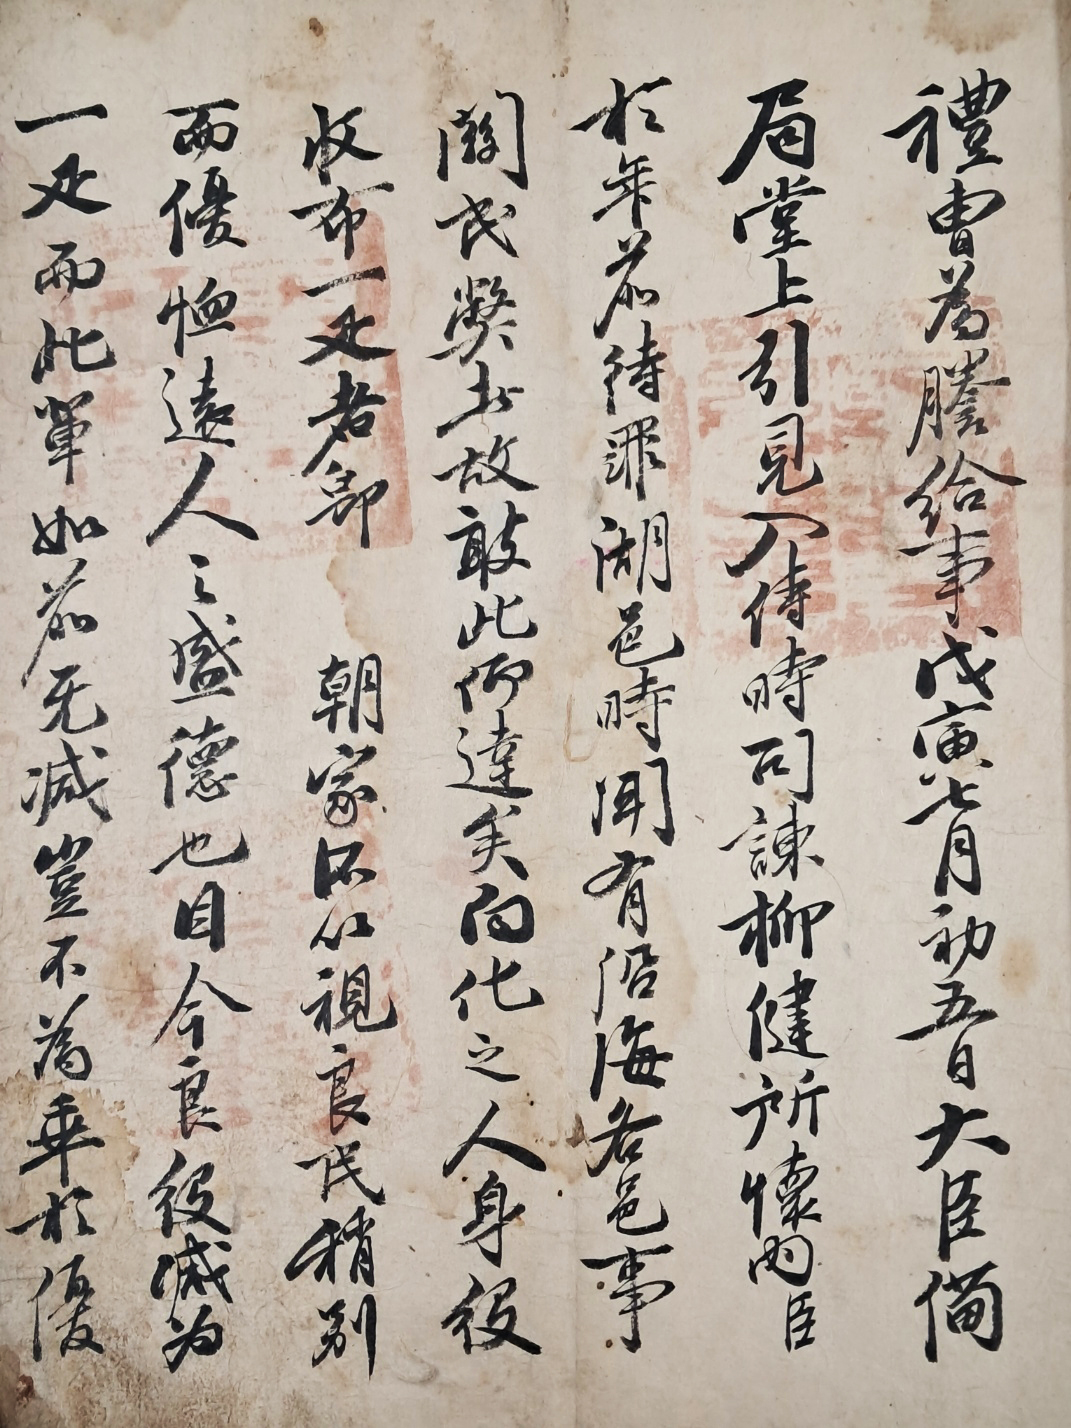 禮曹爲謄給事戊寅七月初五日大臣備
局堂上引見入侍時司諫柳健所懷內臣
於年前待罪湖邑時聞有沿海各邑事
關民弊者故敢此仰達矣向化之人身役
收布一疋者卽 朝家所以視良民稍別
而優恤遠人之盛德也目今良役減爲
一疋而此輩如前無減豈不爲乖於優